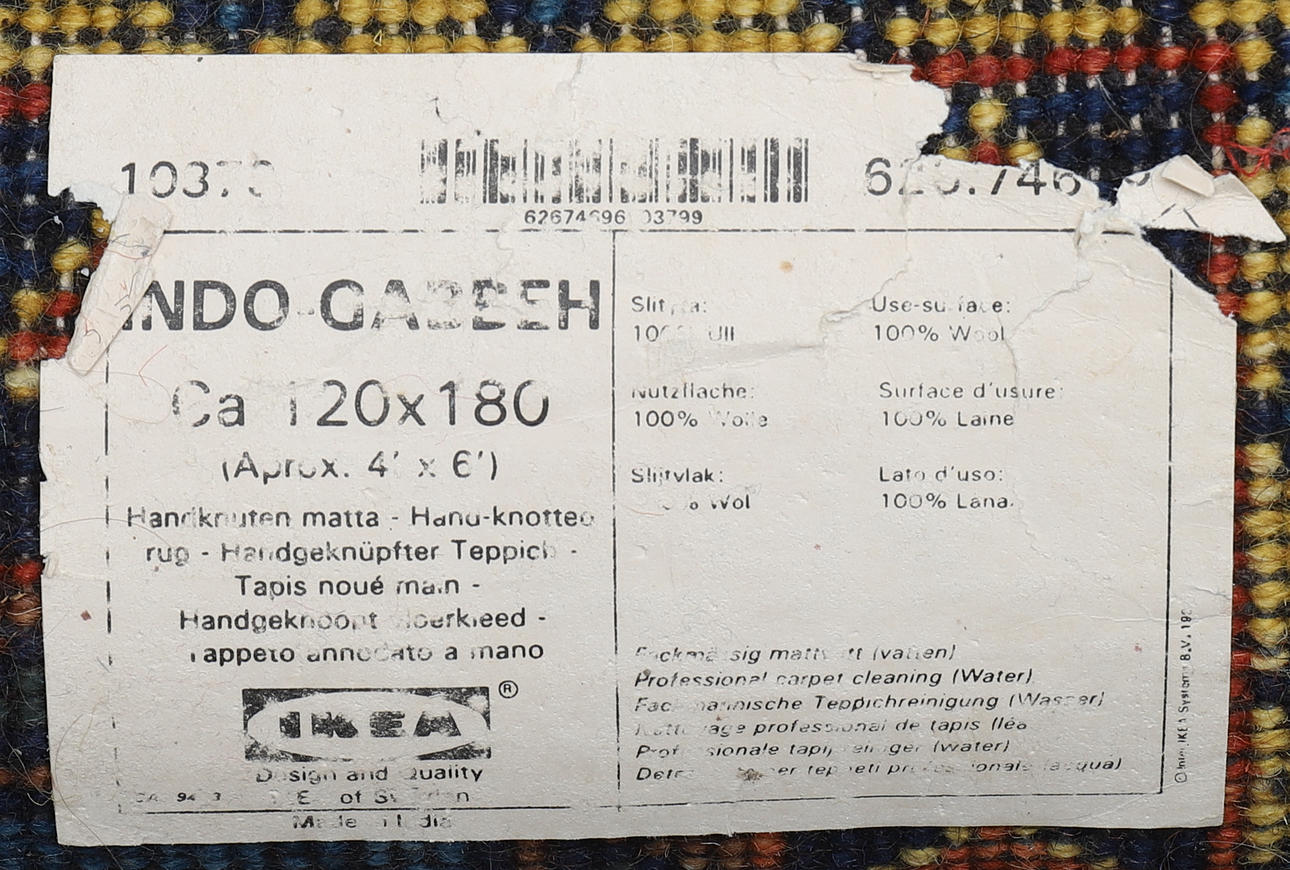 INDO-GABBEH
Ca 120x180
(Aprox. 4' x 6')
Handknuten matta - Hand-knotted
rug - Handgeknüpfter Teppich -
Tapis noué main -
Handgeknoopt vloerkleed -
Tappeto annodato a mano
IKEA ®
Design and Quality
IKEA of Sweden
Made in India
Slityta:
100% Ull
Use-surface:
100% Wool
Nutzfläche:
100% Wolle
Surface d'usure:
100% Laine
Slijtvlak:
Wol
Lato d'uso:
100% Lana.
Fackmässig mattvätt (vatten)
Professional carpet cleaning (Water)
Fachmännische Teppichreinigung (Wasser)
Nettoyage professional de tapis (léa
Professionale tapijtreiniger (water)
(acqua)
© Inter IKEA Systems B.V.